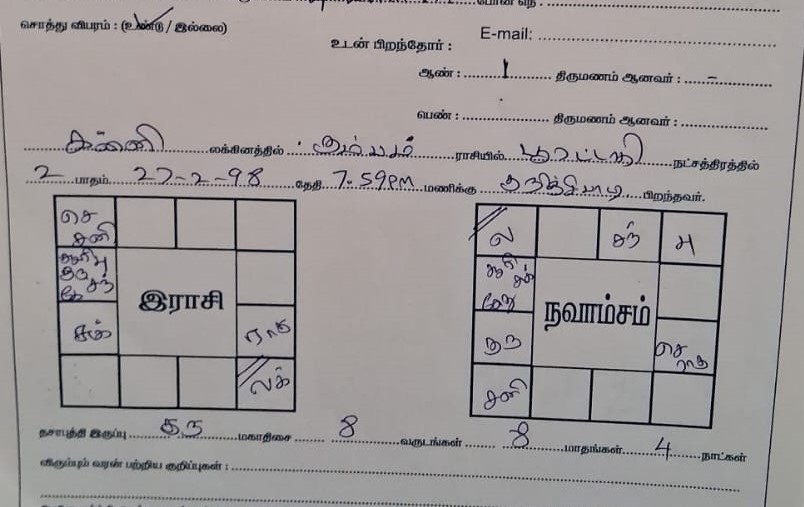 போன் நெ. :
சொத்து விபரம் : (உண்டு / இல்லை)
E-mail:
உடன் பிறந்தோர் :
ஆண் : 1 திருமணம் ஆனவர் : –
பெண் : திருமணம் ஆனவர் :
கன்னி லக்கினத்தில் கும்பம் ராசியில் பூரட்டாதி நட்சத்திரத்தில்
2 பாதம் 27-2-98 தேதி 7.59PM மணிக்கு பிறந்தவர்.
செ சனி
ல சந் பு
சூரி பு குரு சந் கே
சூரி சுக் கேது
இராசி
நவாம்சம்
சுக் ராகு
குரு செ ராகு
லக்
சனி
தசாபுத்தி இருப்பு குரு மகாதிசை 8 வருடங்கள் 8 மாதங்கள் 4 நாட்கள்
விரும்பும் வரன் பற்றிய குறிப்புகள் :